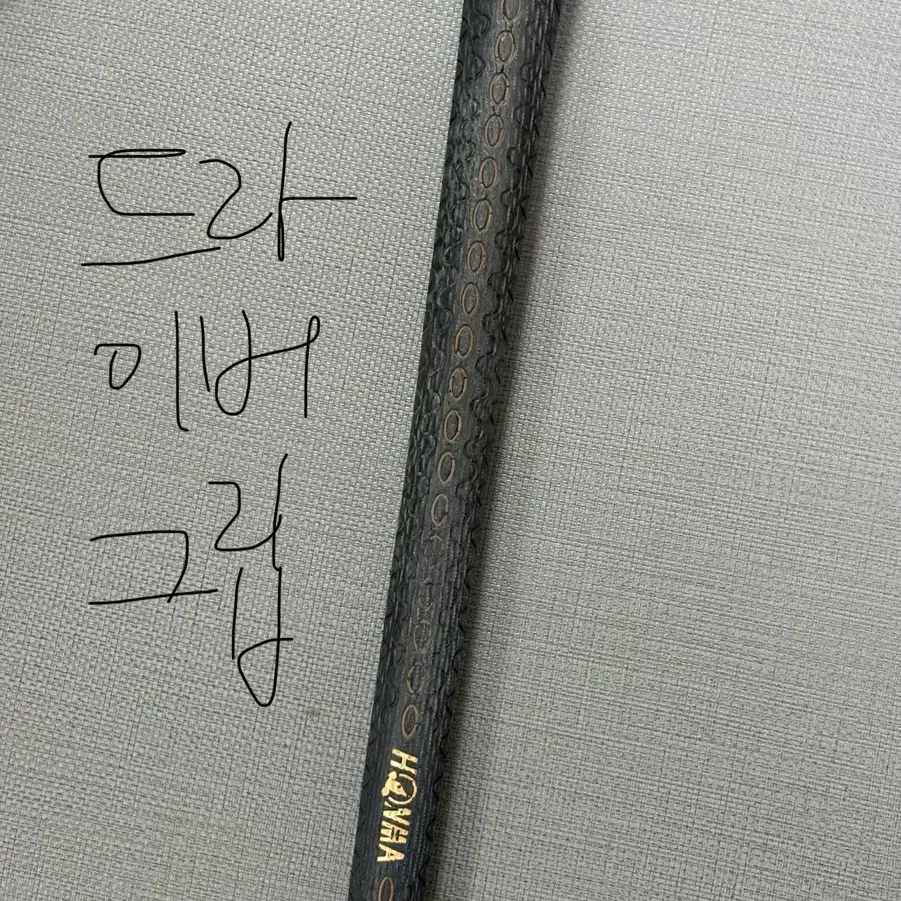 드라
이버
그립
HONMA